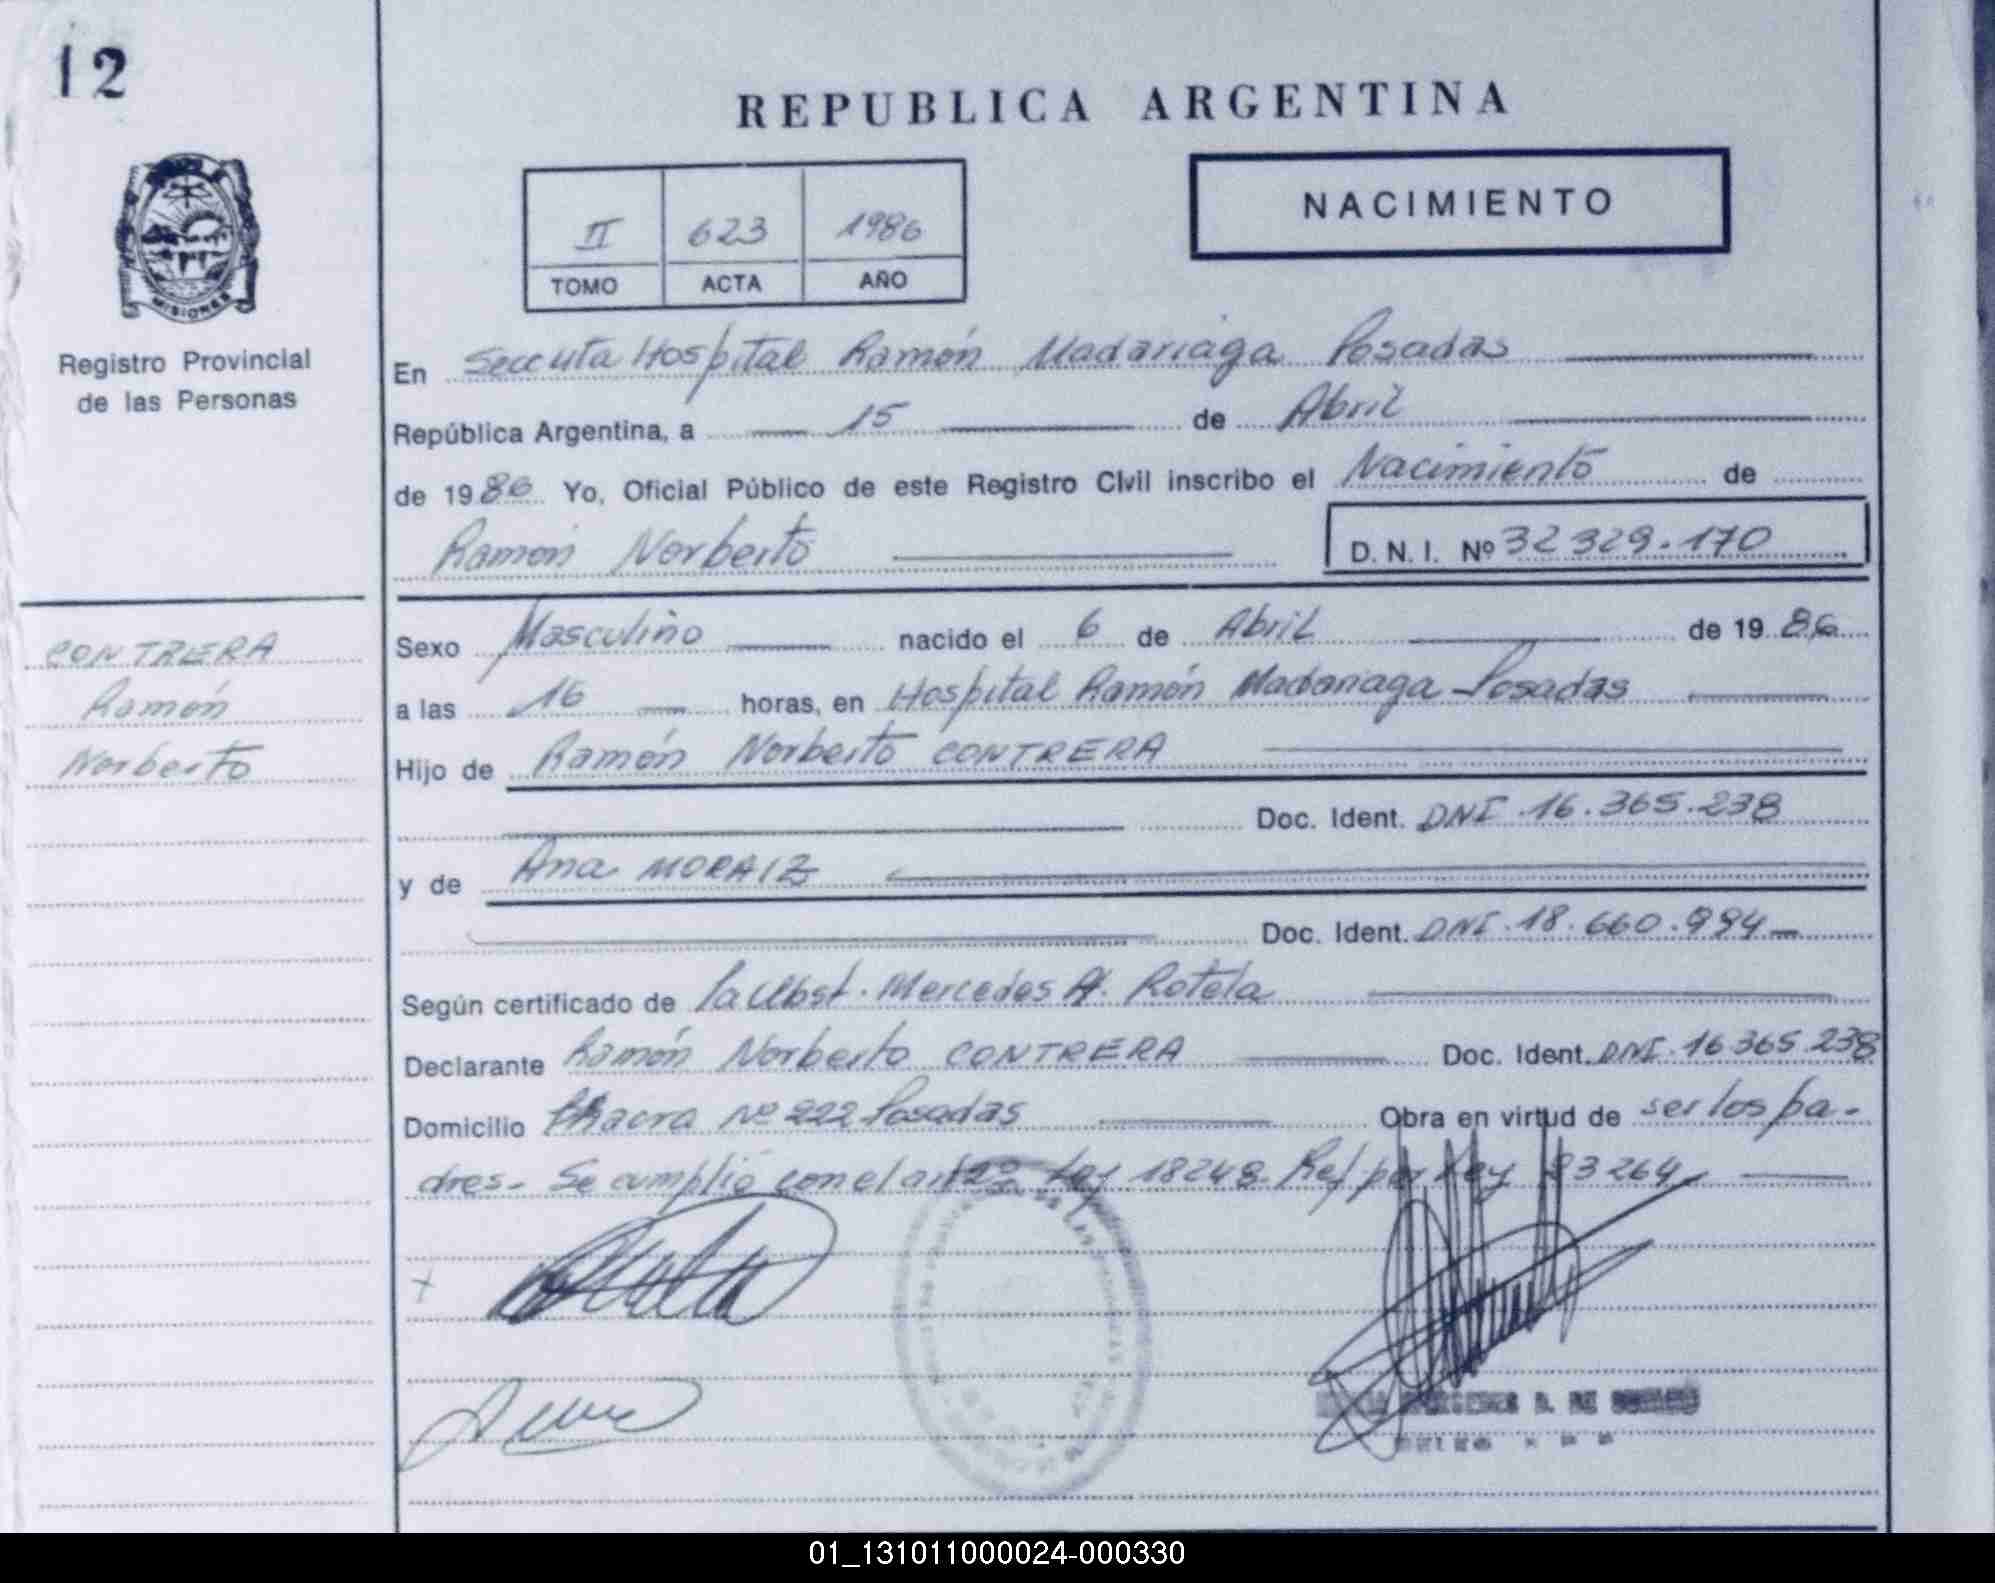 12
REPUBLICA ARGENTINA
NACIMIENTO
II 623 1986
TOMO ACTA AÑO
MISIONES
Registro Provincial
de las Personas
En Hospital Ramón Madariaga Posadas
República Argentina, a 15 de Abril
de 1986 Yo, Oficial Público de este Registro Civil inscribo el Nacimiento de
Ramón Norberto
D. N. I. Nº 32 329.170
CONTRERA
Ramón
Norberto
Sexo Masculino nacido el 6 de Abril de 1986
a las 16 horas, en Hospital Ramón Madariaga Posadas
Hijo de Ramón Norberto CONTRERA
Doc. Ident. DNI 16.365.238
y de Ana MORAIZ
Doc. Ident. DNI 18.660.994
Según certificado de la Obst. Mercedes A. Rotela
Declarante Ramón Norberto CONTRERA Doc. Ident. DNI. 16 365 238
Domicilio Chacra Nº 222 Posadas Obra en virtud de ser los pa-
dres. Se cumplió con el art Ley 18248. Ref por Ley 23264
01_131011000024-000330